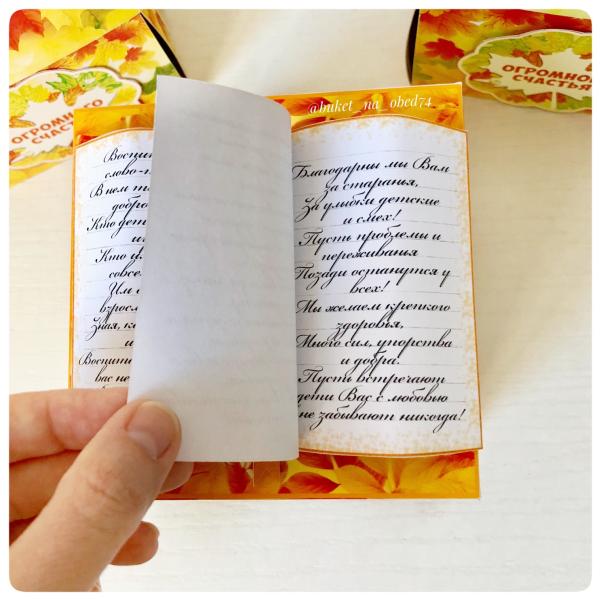 ОГРОМНОГО
СЧАСТЬЯ
ОГРОМНОГО
СЧАСТЬЯ
@buket_na_obed74
слово-
В нем
добро
Кто дет
и
Кто
совсе
Им
взросл
Зная, к
и
вас не
Благодарны мы Вам
за старанья,
За улыбки детские
и смех!
Пусть проблемы и
переживания
Позади останутся у
всех!
Мы желаем крепкого
здоровья,
Много сил, упорства
и добра!
Пусть встречают
дети Вас с любовью
не забывают никогда!